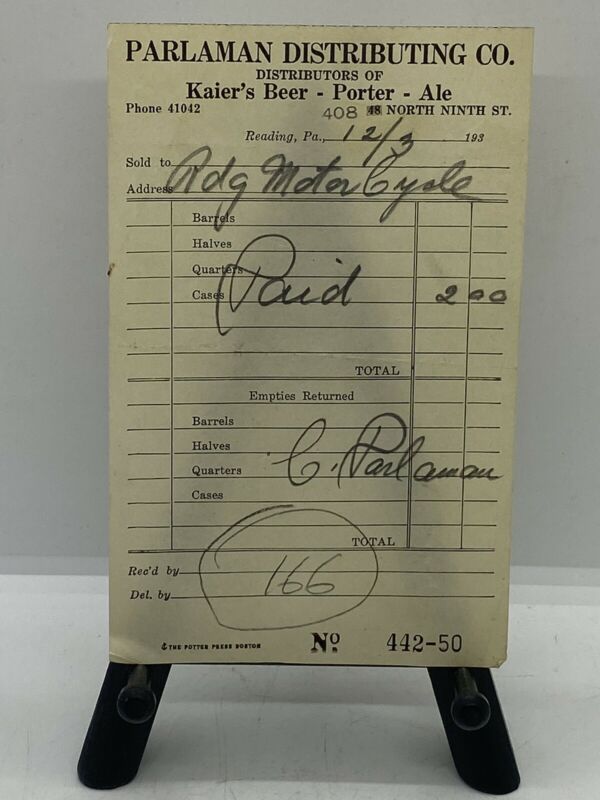 PARLAMAN DISTRIBUTING CO.
DISTRIBUTORS OF
Kaier's Beer - Porter - Ale
Phone 41042 408 48 NORTH NINTH ST.
Reading, Pa., 12/3 193
Sold to
Address Rdg Motor Cycle
Barrels
Halves
Quarters
Paid
Cases 2 00
TOTAL
Empties Returned
Barrels
Halves
Quarters C. Parlaman
Cases
TOTAL
Rec'd by
166
Del. by
THE POTTER PRESS BOSTON No 442-50